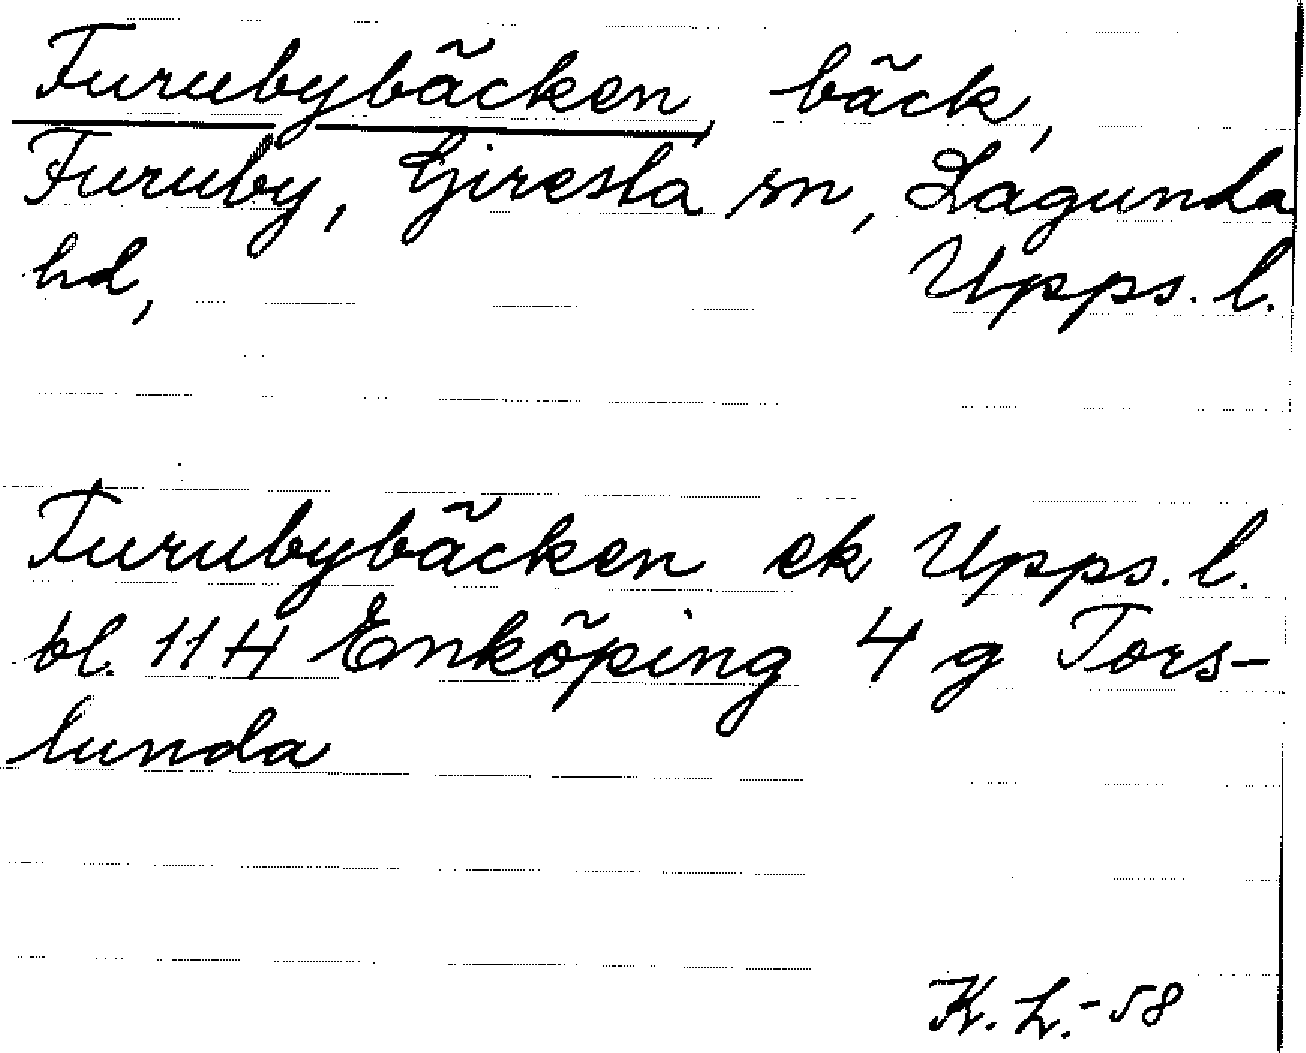 Furubybäcken, bäck,
Furuby, Giresta sn, Lagunda
hd, Upps. l.
Furubybäcken ek Upps. l.
bl. 11 H Enköping 4 g Tors-
lunda
K. L. -58